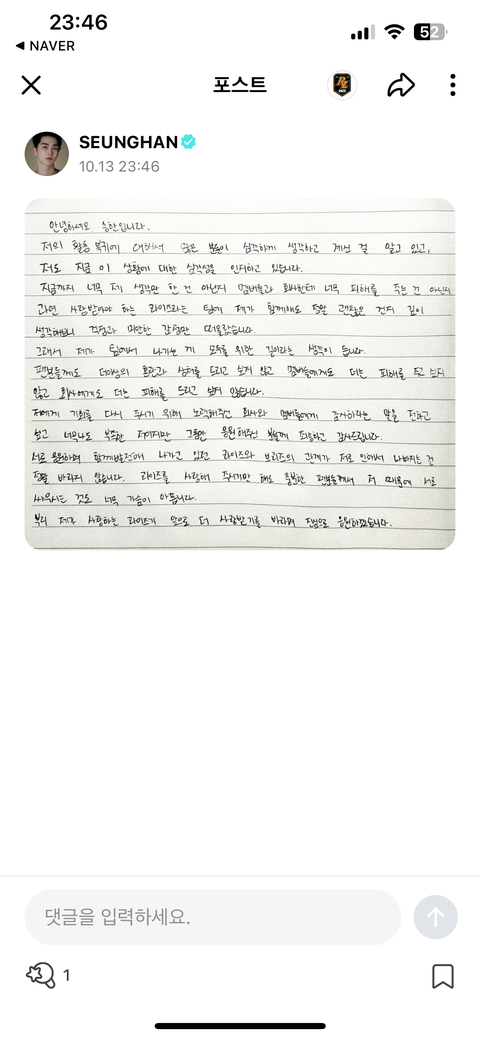 23:46
52
◀ NAVER
포스트
SEUNGHAN
10.13 23:46
안녕하세요 승한입니다.
저의 활동 복귀에 대해서 많은 분들이 심각하게 생각하고 계신 걸 알고 있고,
저도 지금 이 상황에 대한 심각성을 인지하고 있습니다.
지금까지 너무 제 생각만 한 건 아닌지 멤버들과 회사한테 너무 피해를 주는 건 아닌지
과연 사랑받아야 하는 라이즈라는 팀에 제가 함께해도 정말 괜찮은 건지 깊이
생각해보니 걱정과 미안한 감정만 떠올랐습니다.
그래서 제가 팀에서 나가는 게 모두를 위한 길이라는 생각이 듭니다.
팬분들께도 더이상의 혼란과 상처를 드리고 싶지 않고 멤버들에게도 더는 피해를 주고 싶지
않고 회사에게도 더는 피해를 드리고 싶지 않습니다.
저에게 기회를 다시 주시기 위해 노력해주신 회사와 멤버들에게 감사하다는 말을 전하고
싶고 너무나도 부족한 저이지만 그동안 응원해주신 분들께 죄송하고 감사드립니다.
서로 응원하며 함께발전해 나가고 있던 라이즈와 브리즈의 관계가 저로 인해서 나빠지는 건
정말 바라지 않습니다. 라이즈를 사랑해 주시기만 해도 충분한 팬분들께서 저 때문에 서로
싸우시는 것도 너무 가슴이 아픕니다.
부디 제가 사랑하는 라이즈가 앞으로 더 사랑받기를 바라며 진심으로 응원하겠습니다.
댓글을 입력하세요.
1